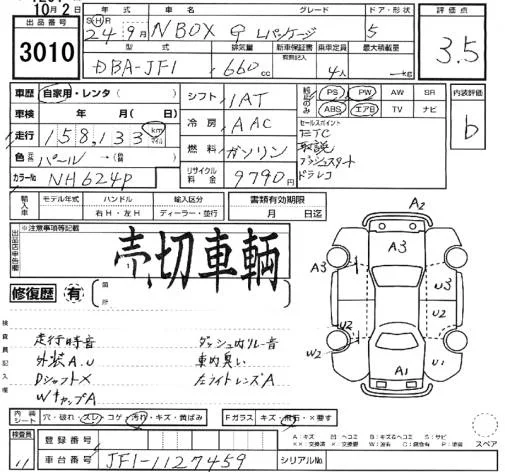 10月2日
出品番号
3010
年式 車名 グレード ドア・形状
S H R 24年9月 N BOX G Lパッケージ 5
型式 排気量 新車保証書 乗車定員 最大積載量
有無記入
DBA-JF1 660cc 4人 kg
評価点
3.5
車歴 自家用・レンタ( )
車検 年 月( 日)
走行 158,133 km
色 パール →( )
カラーNo NH624P
シフト 1AT
冷房 AAC
燃料 ガソリン
リサイクル料金 9790円
PS PW AW SR
ABS エアB TV ナビ
セールスポイント
ETC
取説
プッシュスタート
ドラレコ
内装評価
b
輸入車 モデル年式 ハンドル 輸入区分
右H・左H ディーラー・並行
書類有効期限
月 日迄
※注意事項等記載
売切車輌
修復歴 有 箇所
検査員記入欄
走行時音
外装A.U
DシャフトX
WキャップA
ダッシュ内リレー音
車内臭い
左ライトレンズA
A2
A3 A3 U3
U2 U2
W2 A1 U1
内装シート 穴・破れ・スレ・コゲ・汚れ・キズ・黄ばみ
Fガラス キズ・飛石・×要す
A:キズ
スペア
検査員 11
登録番号
車台番号 JF1-1127459
シリアルNo